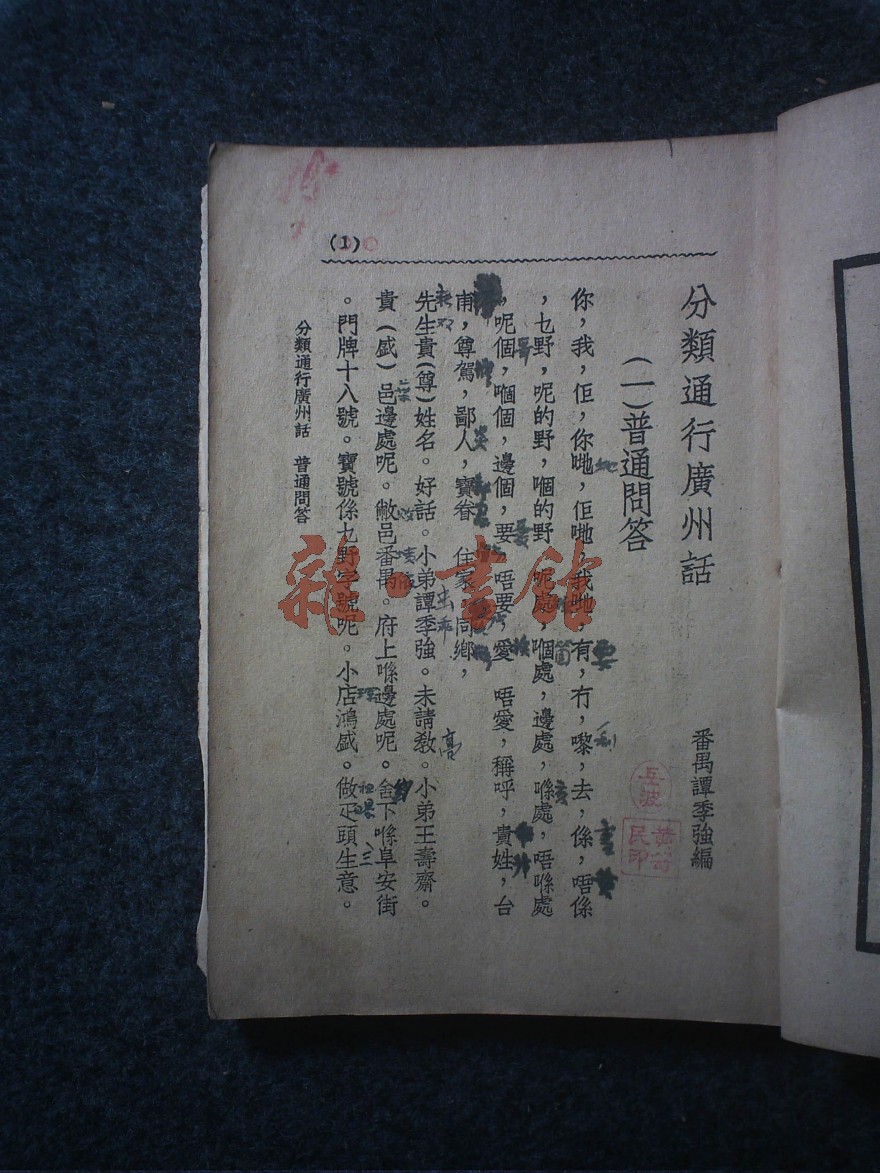 分類通行廣州話
番禺譚季強編
(一)普通問答
你，我，佢，你哋，佢哋，我哋，有，冇，嚟，去，係，唔係
，乜野，呢的野，嗰的野，呢處，嗰處，邊處，喺處，唔喺處
，呢個，嗰個，邊個，要，唔要，愛，唔愛，稱呼，貴姓，台
甫，尊駕，鄙人，寶眷，住家，同鄉，
先生貴(尊)姓名。好話。小弟譚季強。未請敎。小弟王壽齋。
貴(盛)邑邊處呢。敝邑番禺。府上喺邊處呢。舍下喺阜安街
。門牌十八號。寶號係乜野字號呢。小店鴻盛。做疋頭生意。
分類通行廣州話 普通問答
(1)
雜·書館
岳波
黃
民印